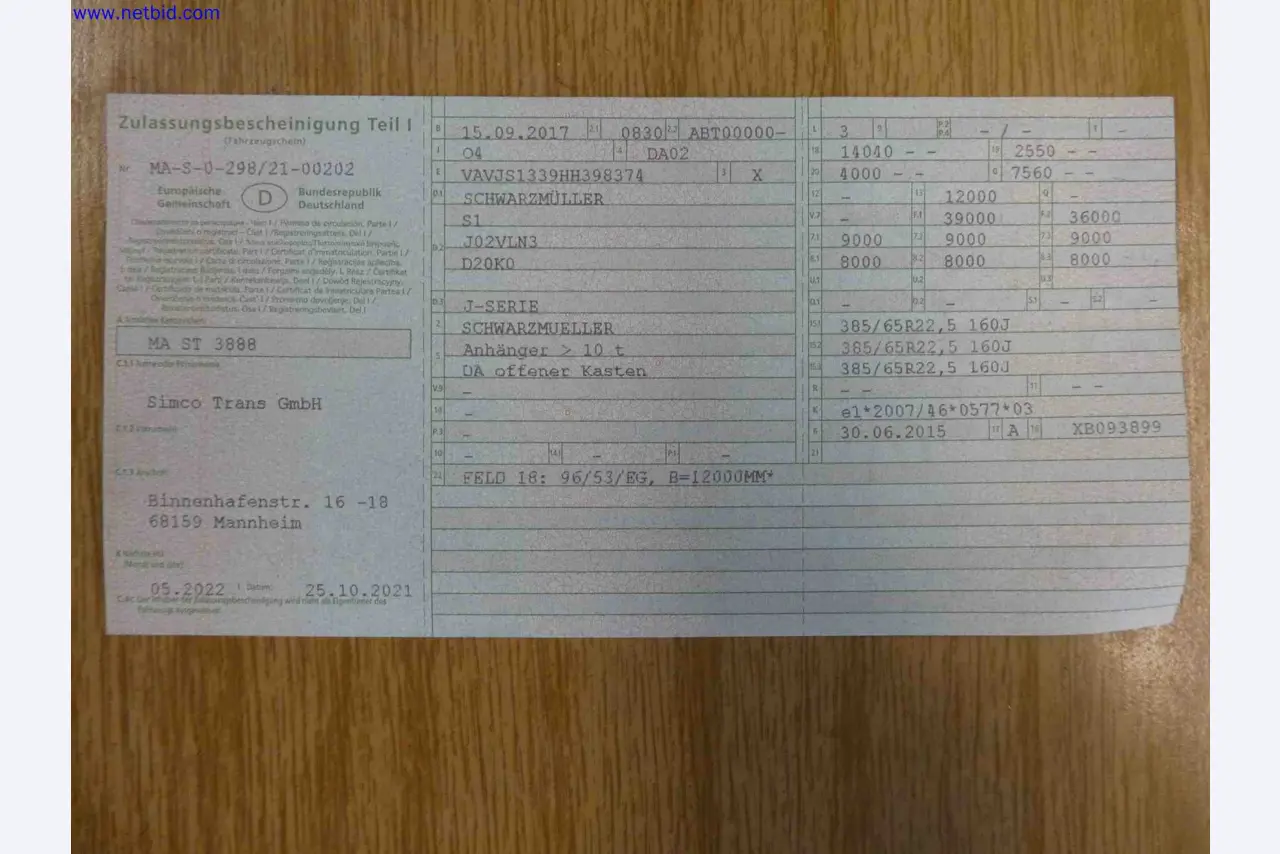 www.netbid.com
Zulassungsbescheinigung Teil I
(Fahrzeugschein)
Nr MA-S-0-298/21-00202
Europäische Gemeinschaft D Bundesrepublik Deutschland
MA ST 3888
Simco Trans GmbH
Binnenhafenstr. 16 -18
68159 Mannheim
05.2022 I Datum: 25.10.2021
B 15.09.2017 2.1 0830 2.2 ABT00000-
J O4 4 DA02
E VAVJS1339HH398374 3 X
D.1 SCHWARZMÜLLER
S1
D.2 J02VLN3
D20K0
D.3 J-SERIE
2 SCHWARZMUELLER
5 Anhänger > 10 t
DA offener Kasten
V.9 -
14 -
P.3 -
10 - 14.1 - P.1 -
22 FELD 18: 96/53/EG, B=12000MM*
L 3 9 P.2 P.4 - / - T -
18 14040 - - 19 2550 - -
20 4000 - - G 7560 - -
12 - 13 12000 Q -
V.7 - F.1 39000 F.2 36000
7.1 9000 7.2 9000 7.3 9000
8.1 8000 8.2 8000 8.3 8000
U.1 U.2 U.3
O.1 - O.2 - S.1 - S.2 -
15.1 385/65R22,5 160J
15.2 385/65R22,5 160J
15.3 385/65R22,5 160J
R - - 11 - -
K e1*2007/46*0577*03
6 30.06.2015 17 A 16 XB093899
21